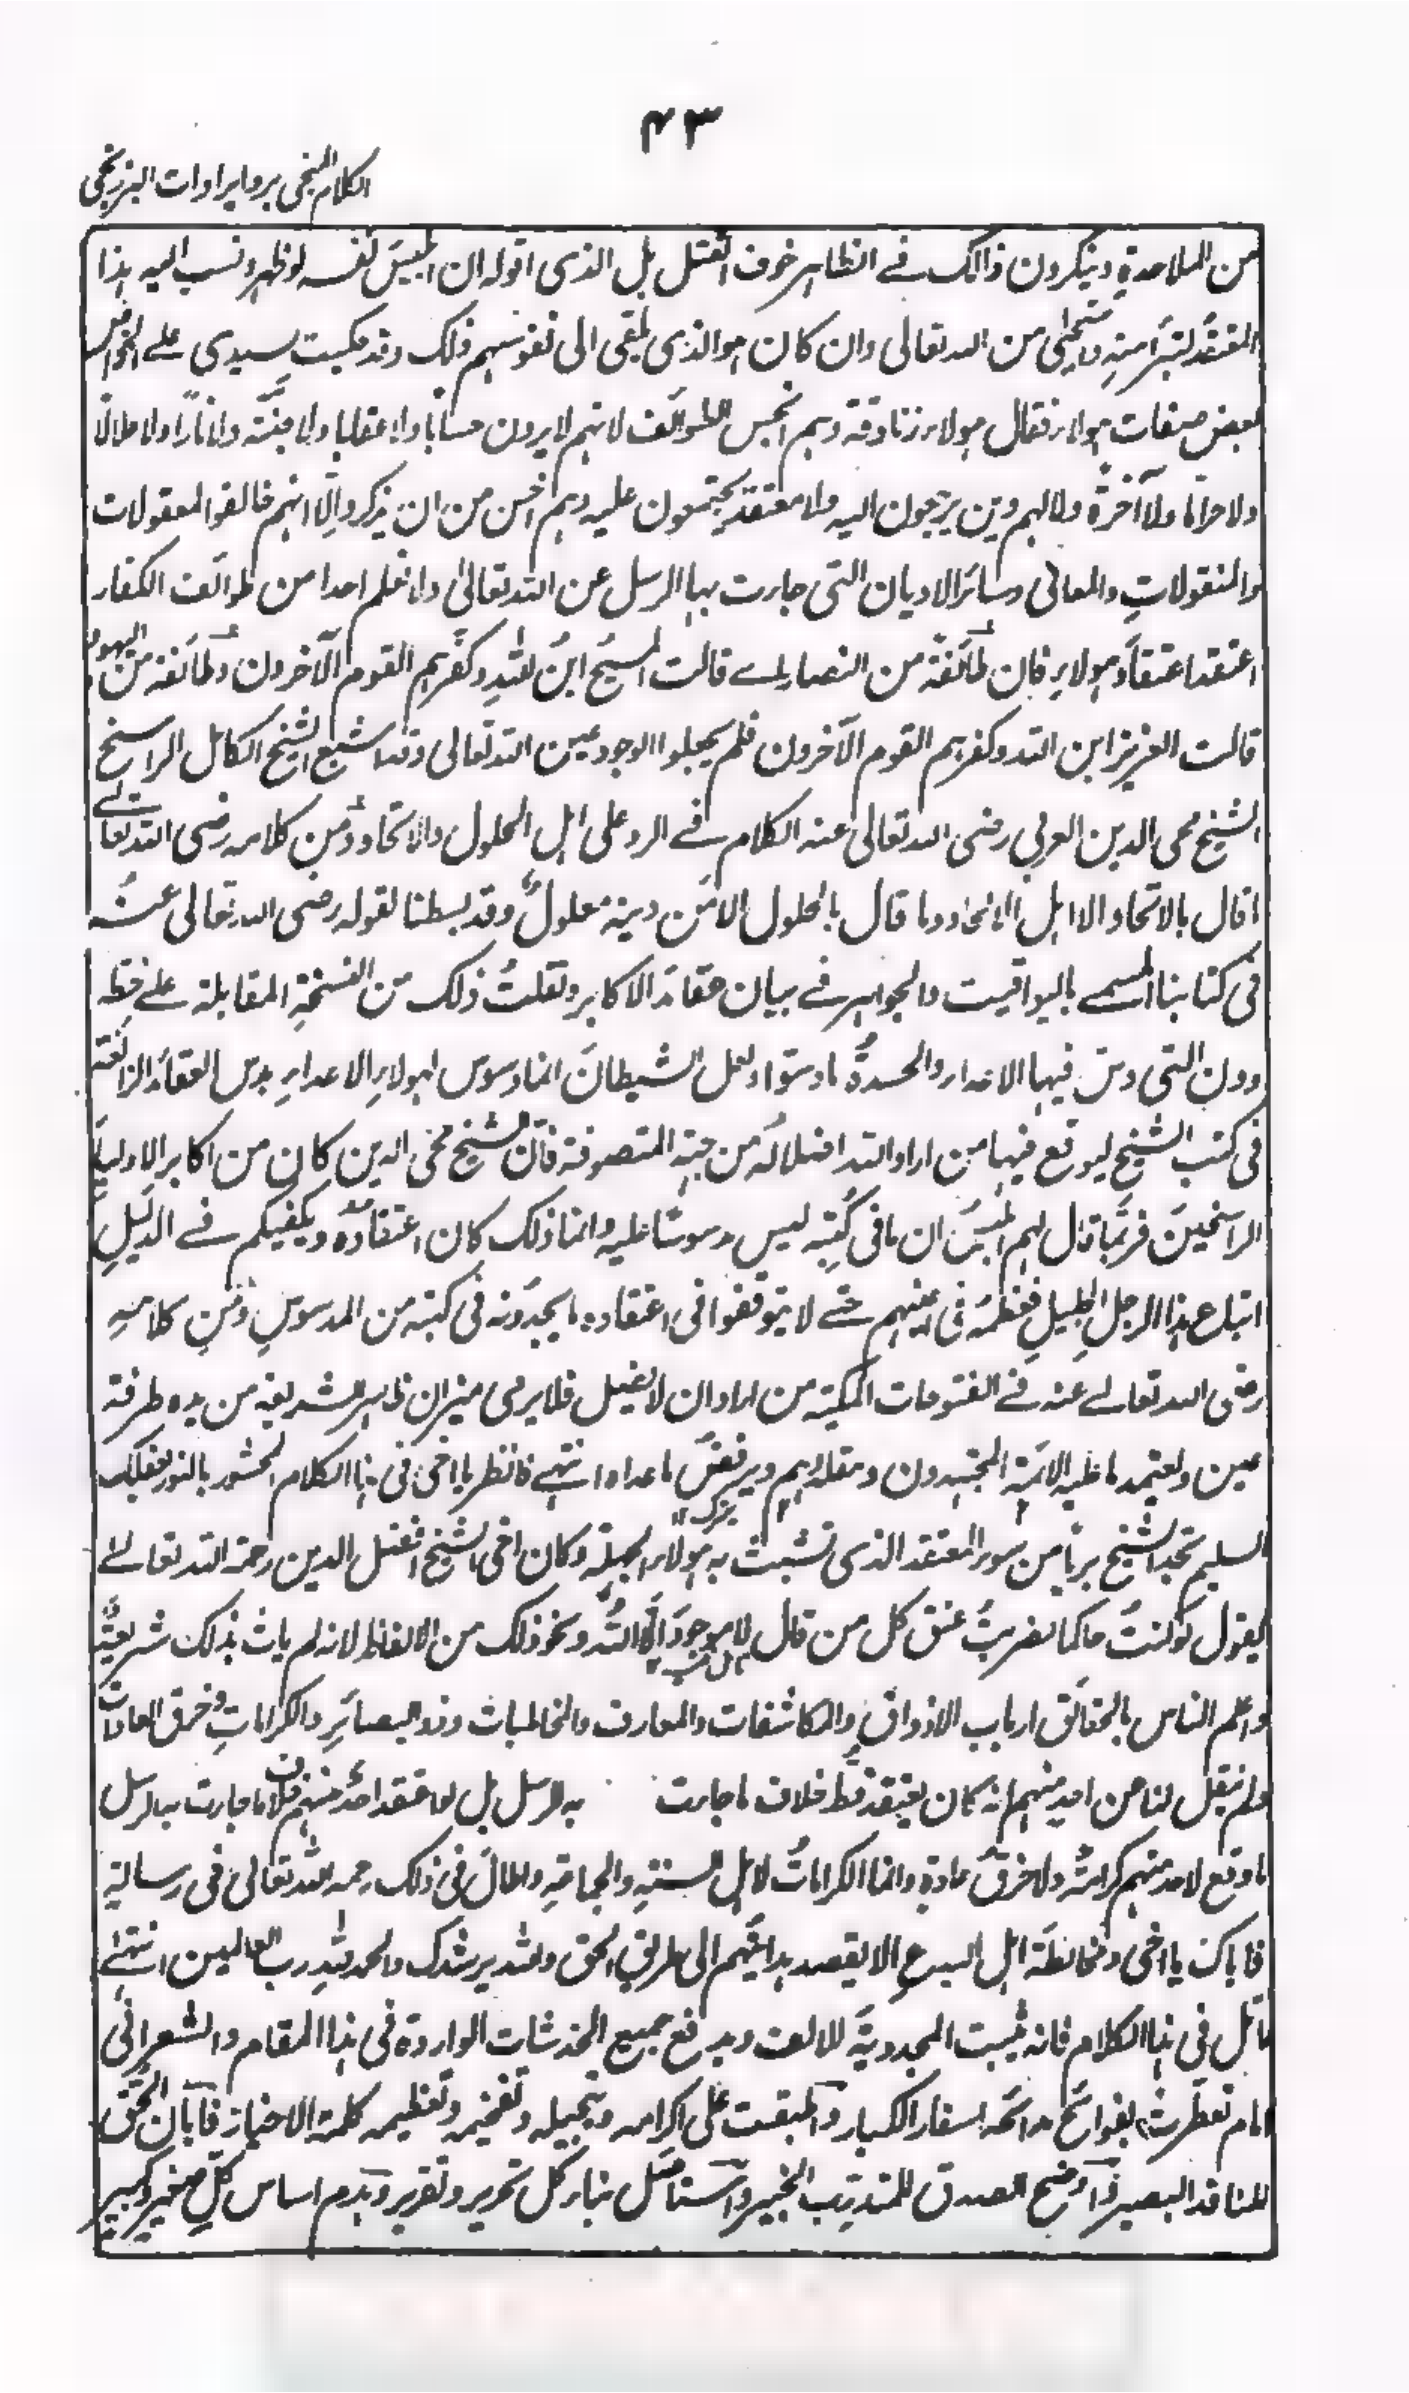 ۴۳
الکلام المنجی بردایرادات البرزنجی
من الملاحدة وینکرون ذالک فے الظاہر خوف القتل بل الذی اقولہ ان ابلیسَ نفسہ لوظہر ونسب الیہ ہذا
المعتقَد لتبرأ منہ واستحیٰی من اللہ تعالی وان کان ہو الذی یلقی الی نفوسہم ذلک وقد حکیت لسیدی علے الخواص
بعض صفات ہولاء فقال ہولاء زنادقة وہم انجس الطوائف لانہم لا یرون حساباً ولا عقابا ولا جنّة ولا ناراً ولا حلالاً
ولا حراماً ولا آخرةً ولا لہم دین یرجعون الیہ ولا معتقد یجتمعون علیہ وہم اخس من ان یذکروا لانہم خالفوا المعقولات
والمنقولاتِ والمعانی وسائر الادیان التی جاءت بہا الرسل عن اللہ تعالیٰ ولا نعلم احدا من طوائف الکفار
اعتقد اعتقاد ہولاء فان طائفة من النصاریٰ قالت المسیح ابنُ للہِ وکفرہم القوم الآخرون وطائفة من الیہود
قالت العزیز ابن اللہ وکفرہم القوم الآخرون فلم یجعلوا الوجود عین اللہ تعالی وقد اشبع الشیخ الکامل الراسخ
الشیخ محی الدین العربی رضی اللہ تعالی عنہ الکلام فے الرد علی اہل الحلول والاتحاد ومن کلامہ رضی اللہ تعالے
ما قال بالاتحاد الا اہل الالحاد وما قال بالحلول الا من دینہ معلولٌ وقد بسطنا لقولہ رضی اللہ تعالی عنہ
فی کتابنا المسمے بالیواقیت والجواہر فے بیان عقائد الاکابر ونقلتُ ذلک من النسخةِ المقابلة علے خطہ
دون التی دسّ فیہا الاعداء والحسدةُ ما دسّوا ولعل الشیطانَ انما وسوس لہولاءِ الاعداءِ بدس العقائد الزائغة
فی کتب الشیخ لیوقع فیہا من اراد اللہ اضلالہُ من جہة المتصوفة فانّ الشیخ محی الدین کان من اکابر الاولیاء
الراسخینَ فربّما قال لہم ابلیسُ ان ما فی کُتبِہ لیس مدسوسًا علیہ وانما ذلک کان اعتقادہ ویکفیکم فے الدلیل
اتباع ہذا الرجل الجلیل فعظمہ فی اعینہم حتے لا یتوقفوا فی اعتقاد ما یجدونہ فی کتبہ من المدسوسِ ومن کلامہِ
رضی اللہ تعالے عنہ فے الفتوحات المکیة من اراد ان لا یضل فلا یرمی میزان ظاہر الشریعة من یدہ طرفة
عین ولیعتمد ما علیہ الائمة المجتہدون ومقلدوہم ویرفض ما عداہ انتہے فانظر یا اخی فی ہذا الکلام المحشو بالنور بعقلک
یترک
السلیم تجد الشیخ بریًا من سوء المعتقد الذی تشبث بہ ہولاء الجہلة وکان اخی الشیخ افضل الدین رحمة اللہ تعالے
یقول لو کنتُ حاکما لضربتُ عنق کل من قال لا موجودَ الّا اللّٰہ ونحو ذلک من الالفاظ لانہ لم یات بذلک شریعة
واعلم الناس بالحقائق ارباب الاذواق والمکاشفات والمعارف والمخاطبات وذو البصائر والکراماتِ وخرق العادات
ولم ینقل لنا من احدٍ منہم انہ کان یعتقد قط خلاف ما جاءت بہ الرسل بل لو اعتقد احدٌ منہم خلاف ما جاءت بہ الرسل
ما وقع لاحد منہم کرامتہ ولا خرق عادة وانما الکراماتُ لاہل السنةِ والجماعةِ واطالَ فی ذلک رحمہ اللہ تعالیٰ فی رسالة
فایاک یا اخی ومخالطة اہل البدع الا بقصد ہدایتہم الی طریق الحق واللہ یرشدک والحمد للہِ رب العالمین انتہے
تامّل فی ہذا الکلام فانہ یثبت المجددیة للالف ویدفع جمیع الخدشات الواردة فی ہذا المقام والشعرانی
امام تعطرت بفوائح مدائحہ اسفار الکبار واطبقت علی اکرامہ وتبجیلہ وتفخیمہ وتعظیمہ کلمة الاخیار فابان الحق
للناقد البصیر واوضح الصدق للمتدرب الخبیر واستاصل بناء کل تحریر وتقریر وہدم اساس کلِّ صغیر وکبیر